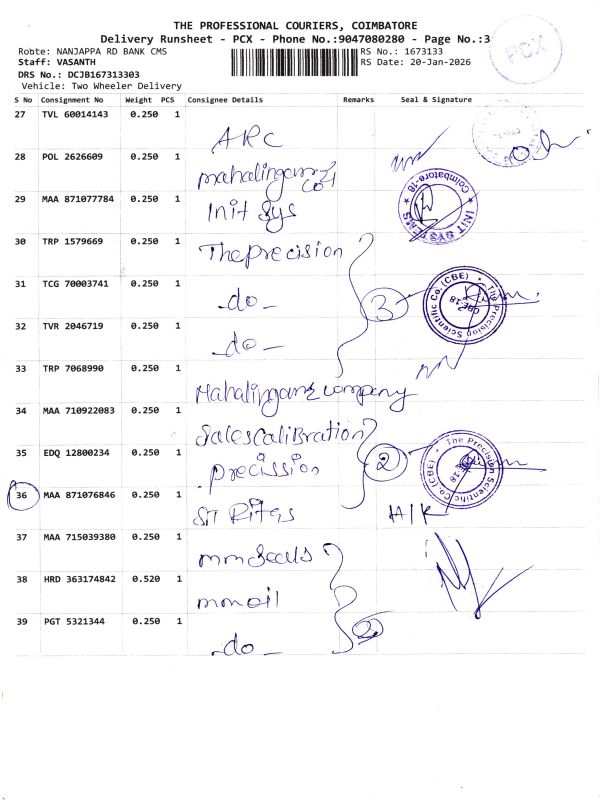 THE PROFESSIONAL COURIERS, COIMBATORE
Delivery Runsheet - PCX - Phone No.:9047080280 - Page No.:3
PCX
Route: NANJAPPA RD BANK CMS
RS No.: 1673133
Staff: VASANTH
RS Date: 20-Jan-2026
DRS No.: DCJB167313303
Vehicle: Two Wheeler Delivery
S No Consignment No Weight PCS Consignee Details Remarks Seal & Signature
27 TVL 60014143 0.250 1
ARC
28 POL 2626609 0.250 1
mahalingam
Co
29 MAA 871077784 0.250 1
Init Sys
INIT SYSTEMS ★ Coimbatore-18 ★
30 TRP 1579669 0.250 1
The precision
31 TCG 70003741 0.250 1
-do-
3
The Precision Scientific Co. (CBE)
CBE-18
32 TVR 2046719 0.250 1
-do-
33 TRP 7068990 0.250 1
Mahalingam company
34 MAA 710922083 0.250 1
Sales Calibration
35 EDQ 12800234 0.250 1
precission
2
The Precision Scientific Co. (CBE)
36 MAA 871076846 0.250 1
H/K
37 MAA 715039380 0.250 1
mm Seals
38 HRD 363174842 0.520 1
mm oil
39 PGT 5321344 0.250 1
-do-
2